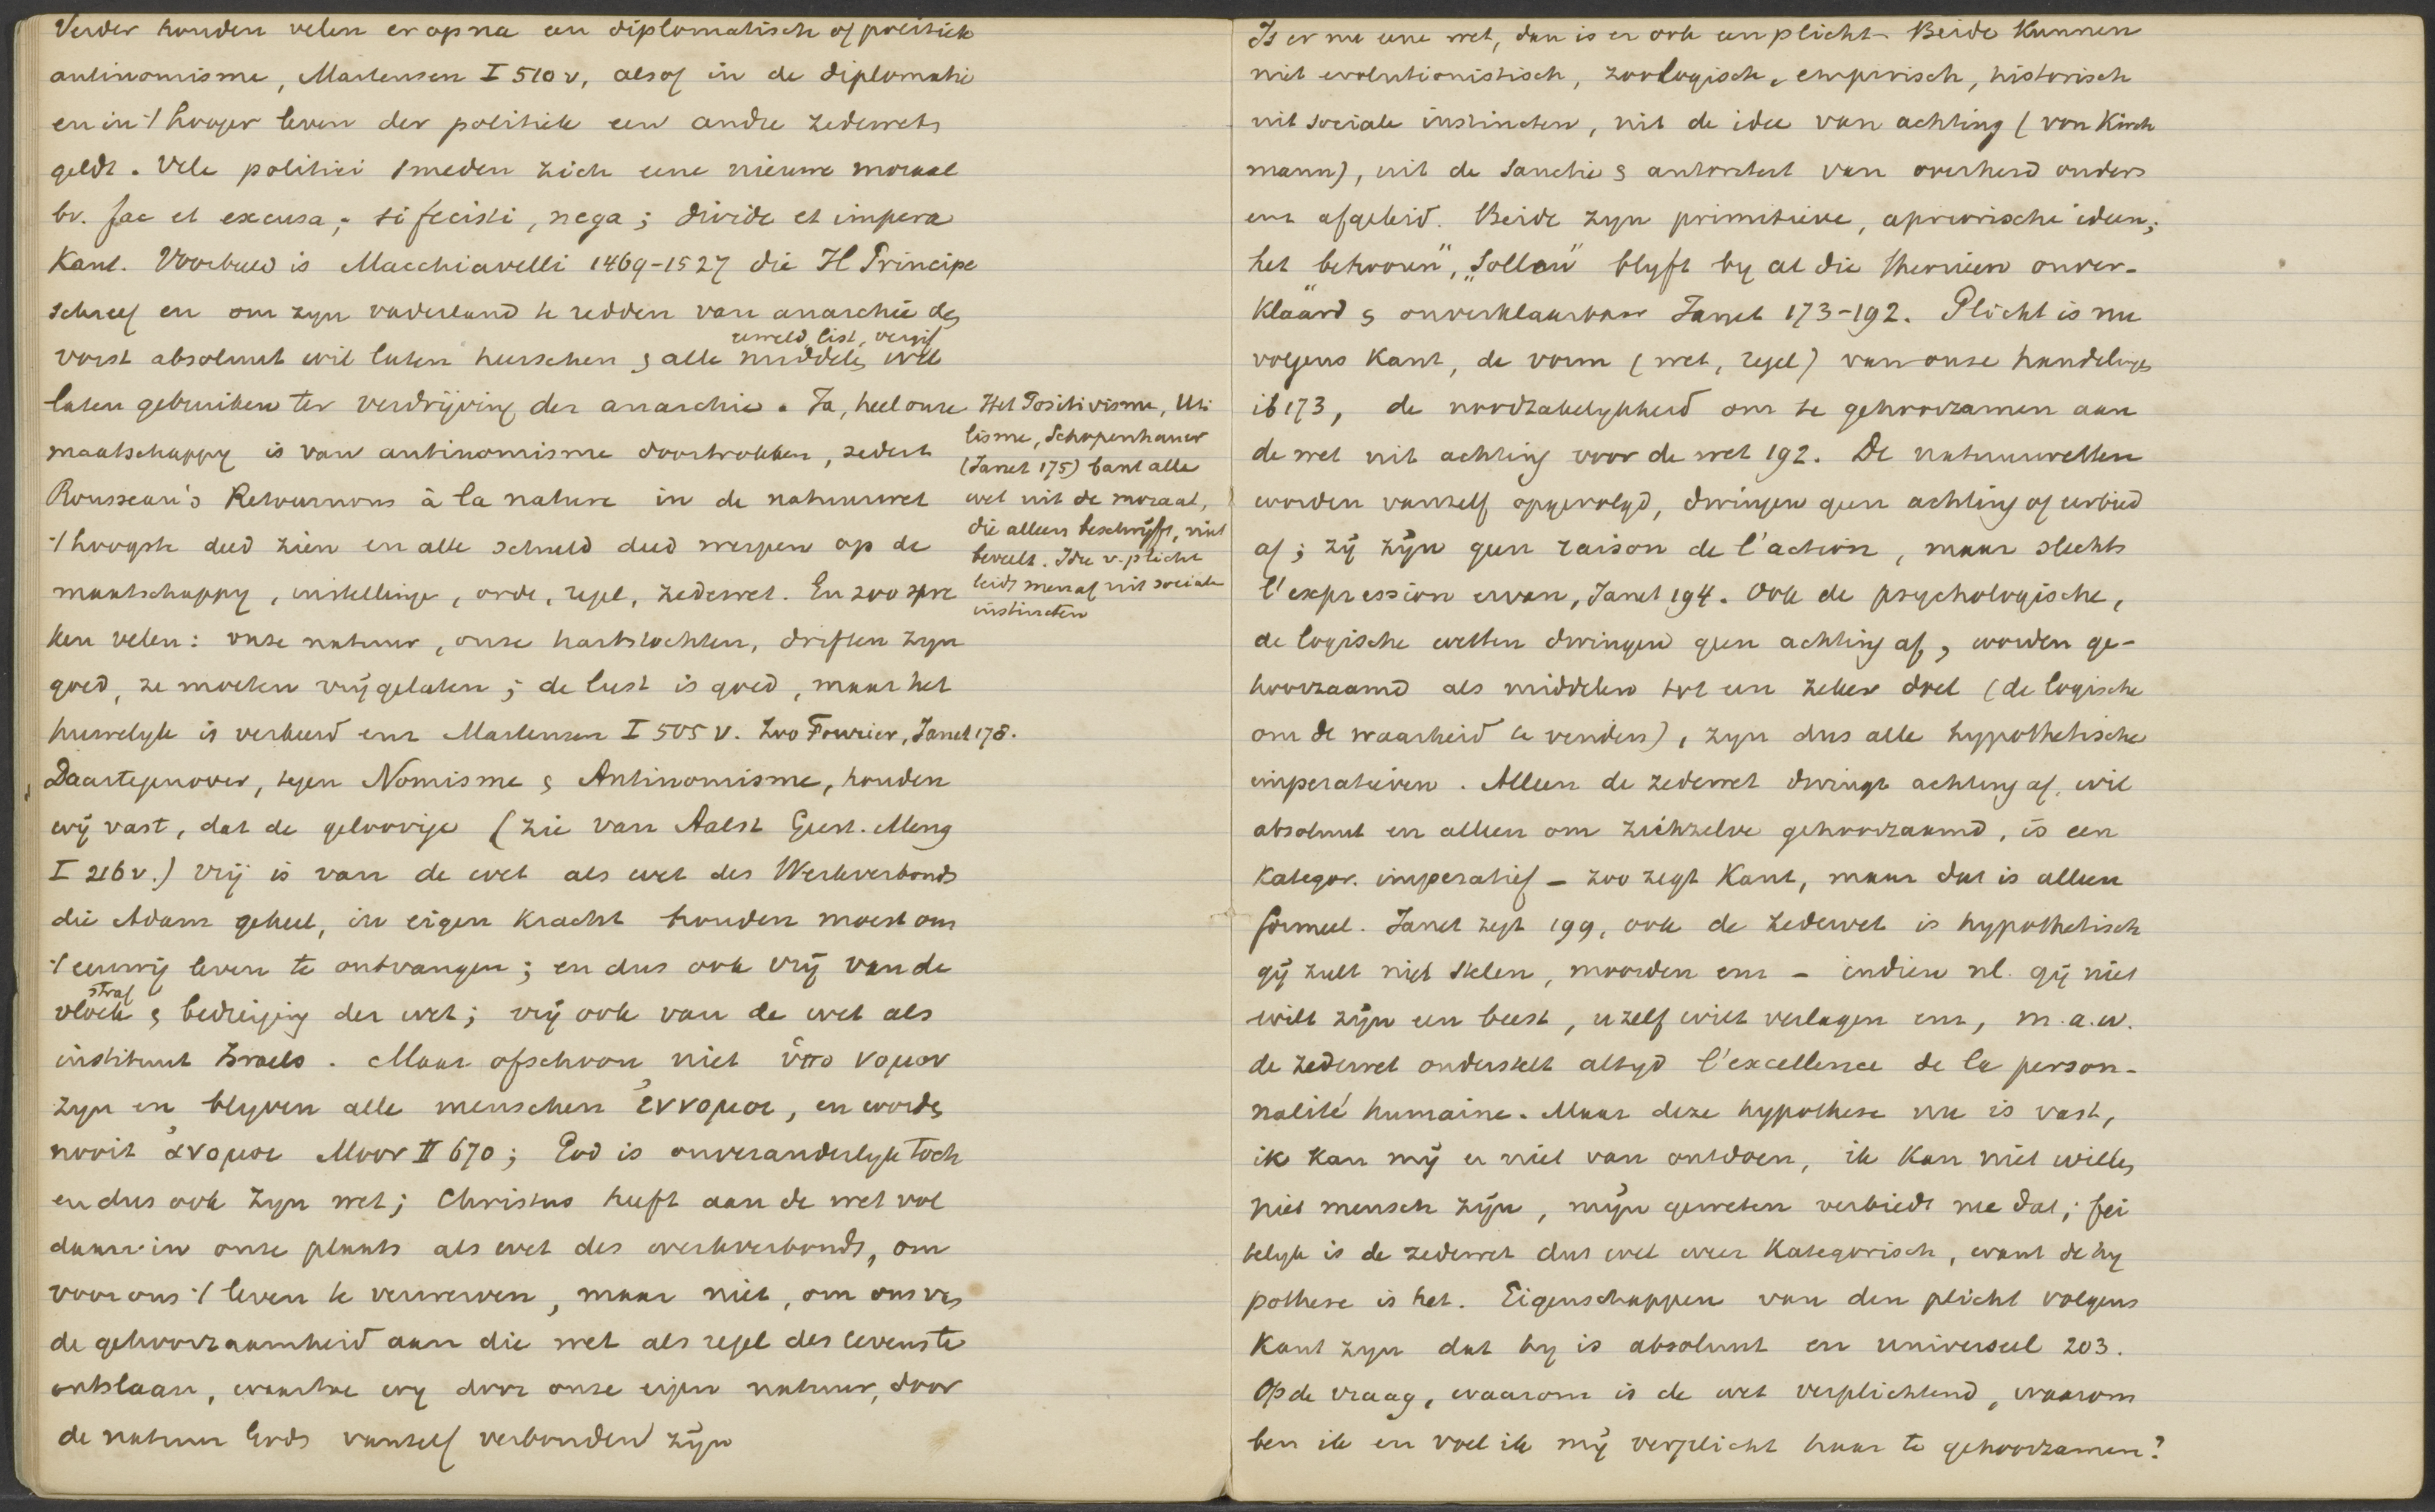 Verder houden velen er op na een diplomatisch of politiek
antinomisme, Martensen I 510 v, alsof in de diplomatie
en in 't hooger leven der politiek een andre zedewet
geldt. Vele politici smeden zich eene nieuwe moraal
bv. fac et excusa; si fecisti, nega; divide et impera
Kant. Voorbeeld is Macchiavelli 1469-1527 die Il Principe
schreef en om zyn vaderland te redden van anarchie de
vorst absoluut wil laten heerschen & alle middelen wil
geweld, list, vergif
laten gebruiken ter verdrijving der anarchie. Ja, heel onze
maatschappy is van antinomisme doortrokken, sedert
Rousseau's Retournons à la nature in de natuurwet
't hoogste deed zien en alle schuld deed werpen op de
maatschappy, instellingen, orde, regel, zedewet. En zoo spre
ken velen: onze natuur, onze hartstochten, driften zyn
goed, ze moeten vrijgelaten; de lust is goed, maar het
huwelyk is verkeerd enz Martensen I 505 v. Zoo Fourier, Janet 178.
Het Positivisme, Uti
lisme, Schopenhauer
(Janet 175) bant alle
wet uit de moraal,
die alleen beschrijft, niet
beveelt. Idee v. plicht
leidt men af uit sociale
instincten
Daartegenover, tegen Nomisme & Antinomisme, houden
wij vast, dat de geloovige (zie van Aalst Geest. Meng
I 216 v.) vrij is van de wet als wet des Werkverbonds
die Adam geheel, in eigen kracht houden moest om
't eeuwig leven te ontvangen; en dus ook vrij van de
straf
vloek & bedreiging der wet; vrij ook van de wet als
instituut Israels. Maar ofschoon niet ὑπο νομον
zyn en blyven alle menschen ἐννομοι, en worden
nooit ἀνομοι Moor II 670; God is onveranderlyk toch
en dus ook zyn wet; Christus heeft aan de wet vol
daan in onze plaats als wet des werkverbonds, om
voor ons 't leven te verwerven, maar niet, om ons van
de gehoorzaamheid aan die wet als regel des levens te
ontslaan, waartoe wy door onze eigen natuur, door
de natuur Gods vanzelf verbonden zijn
Is er nu eene wet, dan is er ook een plicht. Beide kunnen
niet evolutionistisch, zoologisch, empirisch, historisch
uit sociale instincten, uit de idee van achting (von Kirch
mann), uit de sanctie & autoriteit van overheid ouders
enz afgeleid. Beide zyn primitieve, apriorische ideen;
het „behooren", „Sollen" blyft by al die theorieen onver-
klaard & onverklaarbaar Janet 173-192. Plicht is nu
volgens Kant, de vorm (wet, regel) van onze handelingen
ib 173, de noodzakelykheid om te gehoorzamen aan
de wet uit achting voor de wet 192. De natuurwetten
worden vanzelf opgevolgd, dwingen geen achting of eerbied
af; zij zijn geen raison de l'action, maar slechts
l'expression ervan, Janet 194. Ook de psychologische,
de logische wetten dwingen geen achting af, worden ge-
hoorzaamd als middelen tot een zeker doel (de logische
om de waarheid te vinden), zyn dus alle hypothetische
imperatieven. Alleen de zedewet dwingt achting af, wil
absoluut en alleen om zichzelve gehoorzaamd, is een
kategor. imperatief - zoo zegt Kant, maar dat is alleen
formeel. Janet zegt 199, ook de zedewet is hypothetisch
gij zult niet stelen, moorden enz - indien nl. gij niet
wilt zijn een beest, uzelf wilt verlagen enz, m.a.w.
de zedewet onderstelt altyd l'excellence de la person-
nalité humaine. Maar deze hypothese nu is vast,
ik kan mij er niet van ontdoen, ik kan niet willen
niet mensch zijn, mijn geweten verbiedt me dat; fei
telyk is de zedewet dus wel weer kategorisch, want de hy
pothese is het. Eigenschappen van den plicht volgens
Kant zyn dat hy is absoluut en universeel 203.
Op de vraag, waarom is de wet verplichtend, waarom
ben ik en voel ik mij verplicht haar te gehoorzamen?